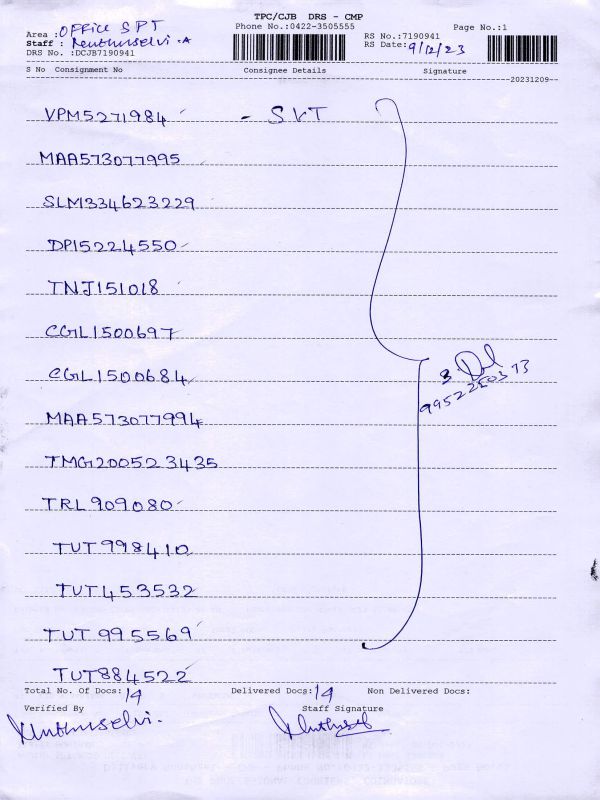 TPC/CJB DRS - CMP
Phone No.:0422-3505555
Page No.:1
Area : OFFICE SPT
Staff : Kenthurselvi.A
DRS No. :DCJB7190941
RS No.:7190941
RS Date: 9/12/23
S No Consignment No Consignee Details Signature
20231209
VPM5271984 - SVT
MAA573077995
SLM334623229
DP15224550
TNJ151018
CGL1500697
CGL1500684
MAA573077994
TMG200523435
TRL909080
TUT998410
TUT453532
TUT995569
TUT884522
Total No. Of Docs: 14 Delivered Docs: 14 Non Delivered Docs:
Verified By Staff Signature